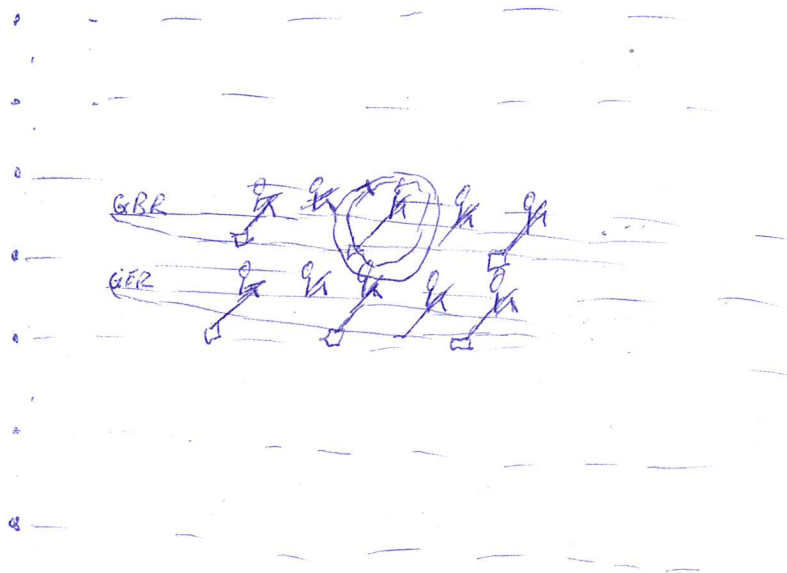 GBR
GER